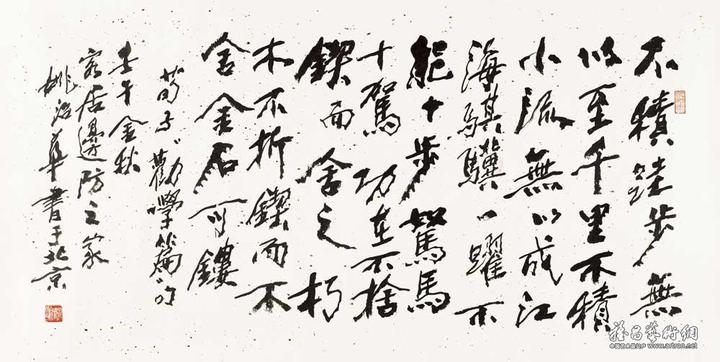 不積跬步無
以至千里不積
小流無以成江
海騏驥一躍不
能十步駑馬
十駕功在不捨
鍥而舍之朽
木不折鍥而不
舍金石可鏤
荀子"勸學篇"句
壬午金秋
客居邊防之家
姚治華書于北京
雅昌藝術網